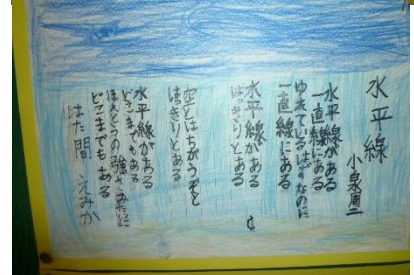 水平線
小泉周二
水平線がある
一直線にある
ゆれているはずなのに
一直線にある
水平線がある
はっきりとある
空とはちがうぞと
はっきりとある
水平線がある
どこまでもある
ほんとうの強さみたいに
どこまでもある
はた間 えみか